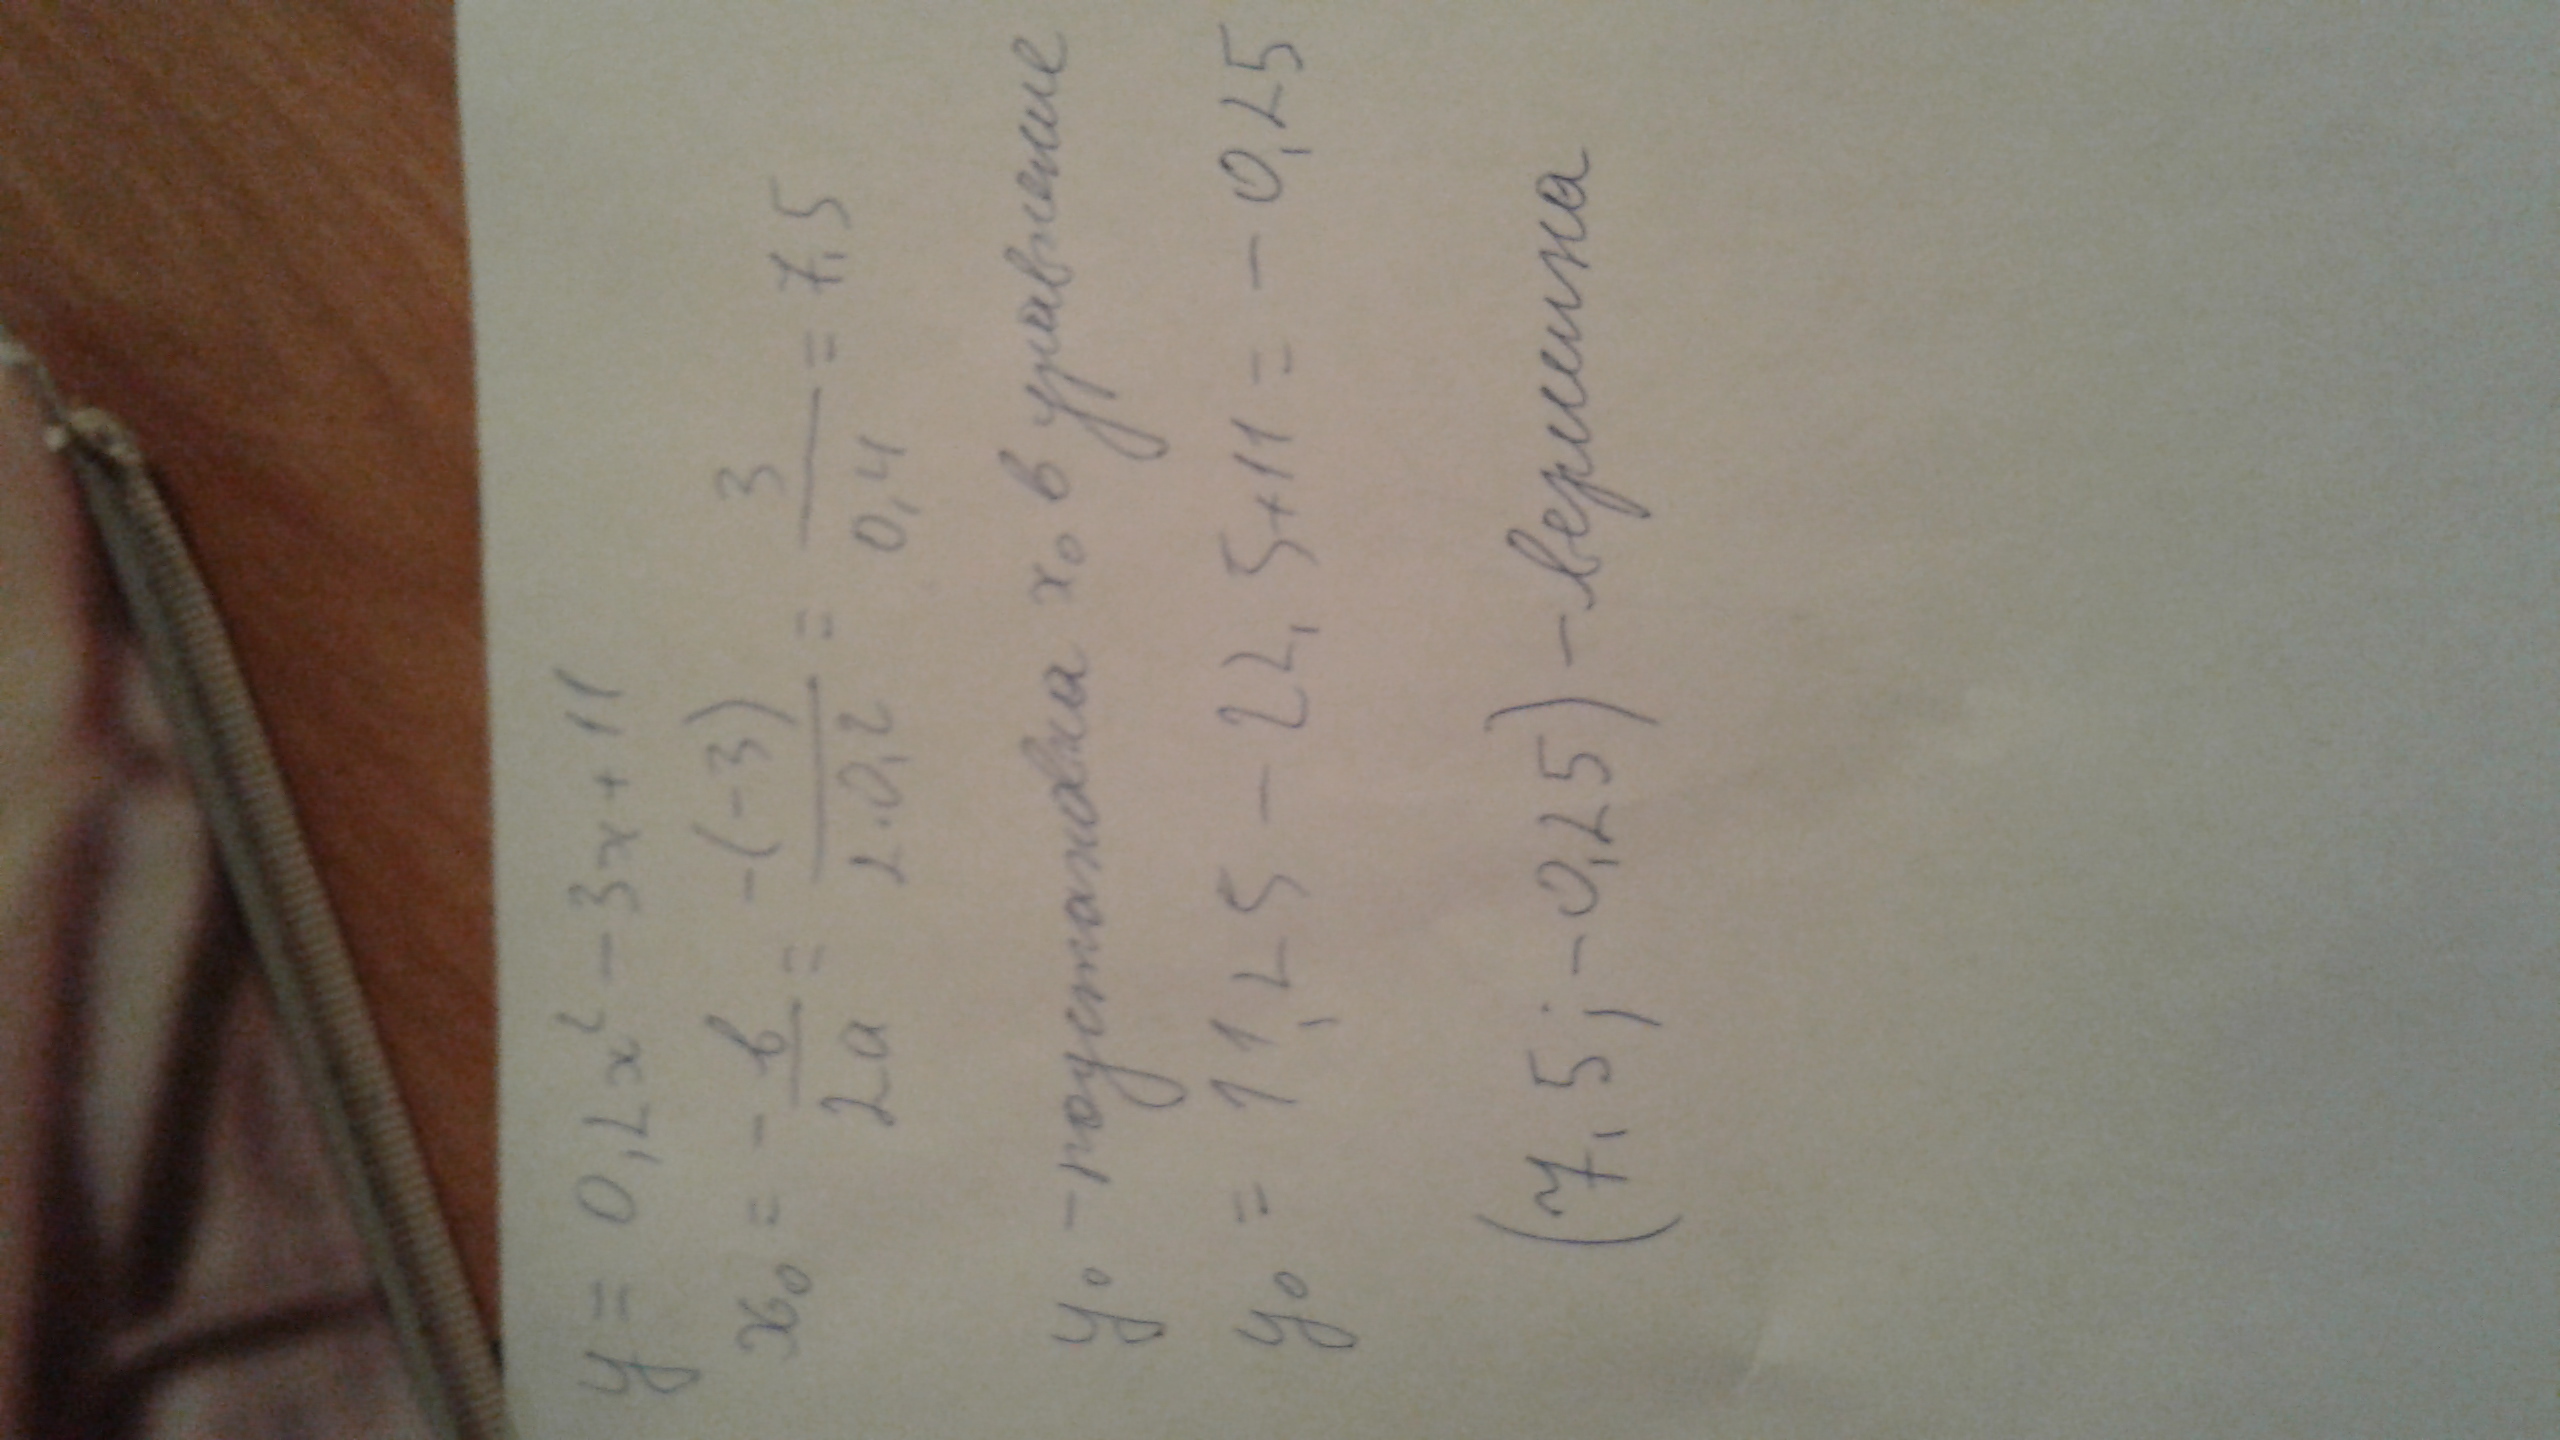 y = 0,2x² - 3x + 11
x₀ = - в/2a = -(-3)/2·0,2 = 3/0,4 = 7,5
y₀ - подстановка x₀ в уравнение
y₀ = 11,25 - 22,5 + 11 = -0,25
(7,5; -0,25) - вершина